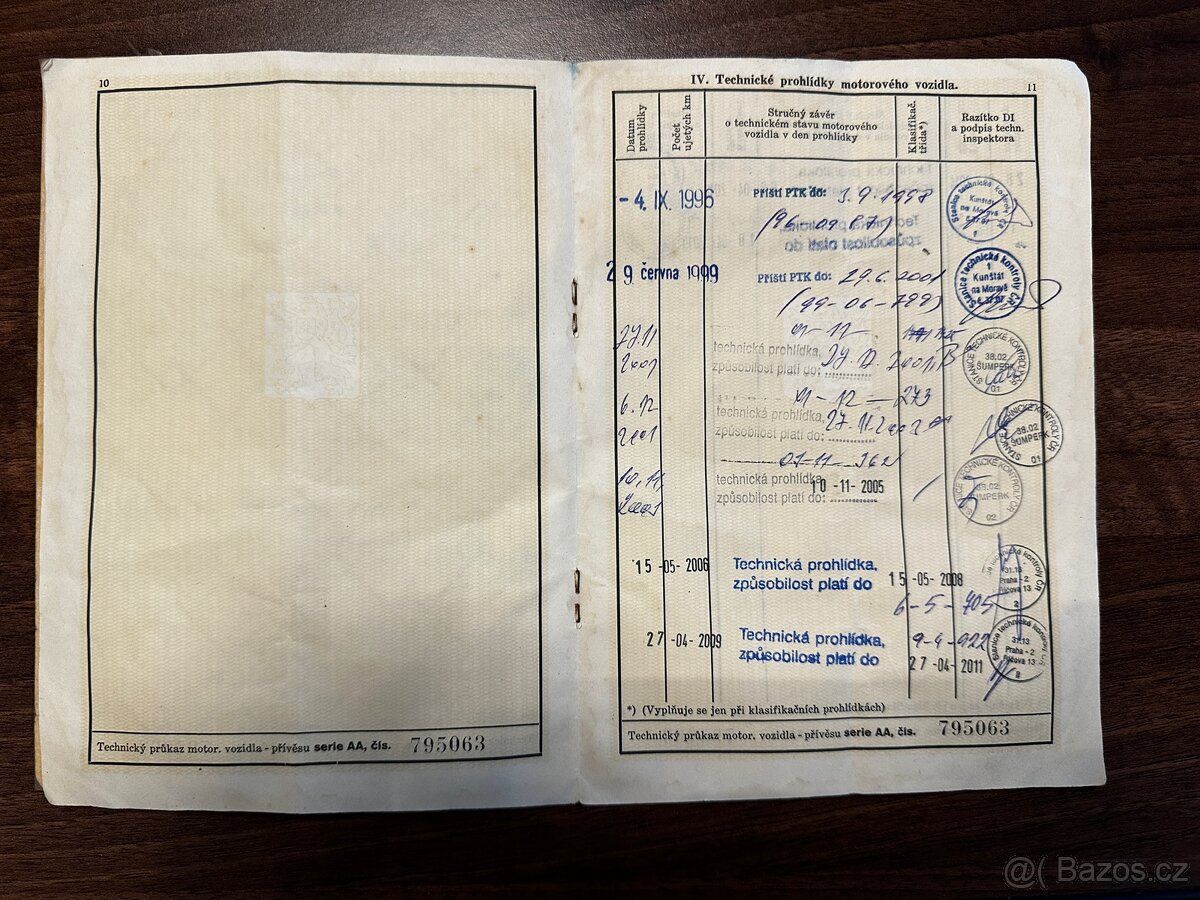 10
Technický průkaz motor. vozidla - přívěsu serie AA, čís. 795063
IV. Technické prohlídky motorového vozidla.
11
Datum prohlídky
Počet ujetých km
Stručný závěr
o technickém stavu motorového
vozidla v den prohlídky
Klasifikač. třída*)
Razítko DI
a podpis techn.
inspektora
- 4. IX. 1996
Příští PTK do: 3.9.1998
Stanice technické kontroly ČR
Kunštát
na Moravě
29 června 1999
Příští PTK do: 29.6.2001
(99-06-799)
Stanice technické kontroly ČR
1
Kunštát
na Moravě
2001
technická prohlídka,
způsobilost platí do:
STANICE TECHNICKÉ KONTROLY ČR
38.02
ŠUMPERK
01
6.12
2001
01-12-273
technická prohlídka,
způsobilost platí do: 27.11.2002
STANICE TECHNICKÉ KONTROLY ČR
38.02
ŠUMPERK
01
10.11
technická prohlídka
způsobilost platí do: 10-11-2005
STANICE TECHNICKÉ KONTROLY ČR
38.02
ŠUMPERK
02
15-05-2006
Technická prohlídka,
způsobilost platí do 15-05-2008
6-5-705
technické kontroly ČR
31.13
Praha - 2
2
27-04-2009
Technická prohlídka,
způsobilost platí do 27-04-2011
9-4-922
Stanice technické kontroly ČR
31.13
Praha - 2
*) (Vyplňuje se jen při klasifikačních prohlídkách)
Technický průkaz motor. vozidla - přívěsu serie AA, čís. 795063
@( Bazos.cz